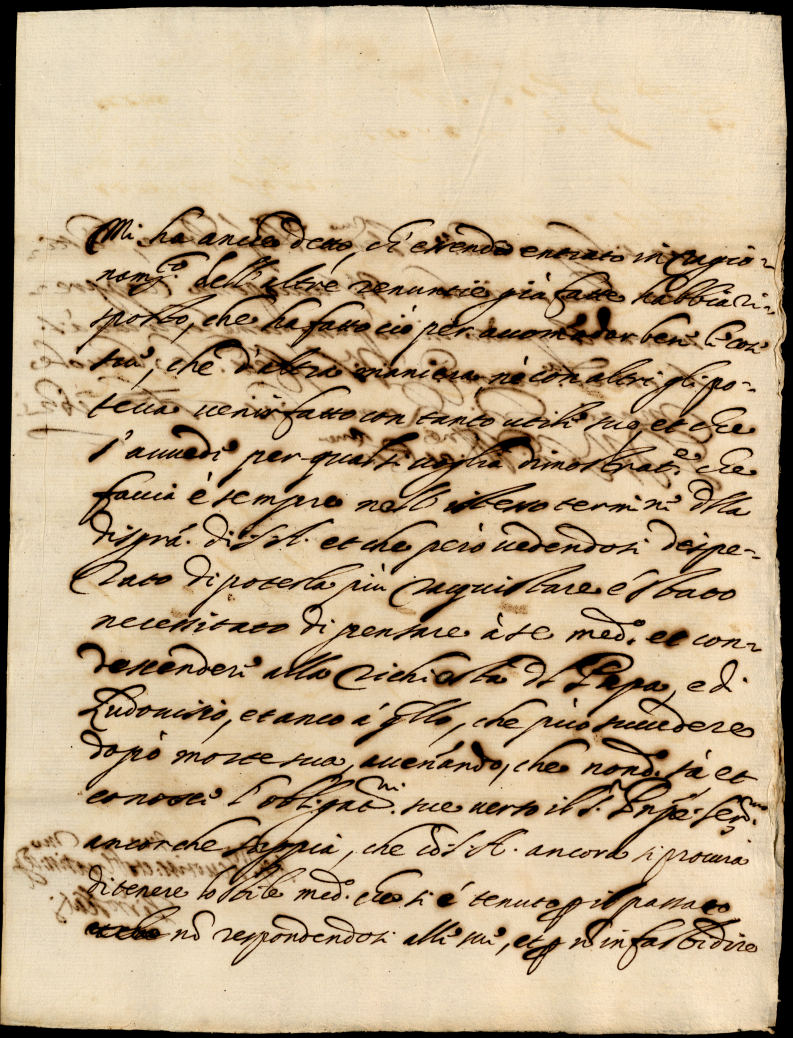 Mi ha anco detto, ch'essendo entrato in ragio-
nam.to dell'altre renuntie già fatte habbia ri-
sposto, che ha fatto ciò per accomodar ben le cose
sue, che d'altra maniera nè con altri gli po-
teva venir fatto con tanto utile suo, et che
s'avvede per qualsivoglia dimostrat.e che
faccia è sempre nell'istesso termine della
disgrá. di S.A. et che però vedendosi despe-
rato di poterla più raquistare é stato
necessitato di pensare à se med.o et con-
descendere alla richiesta del Papa, e di
Ludovisio, et anco á qllo, che può succedere
dopò morte sua, accenándo, che nond. sà et
conosce l'obligat.ni sue verso il S.r Prnpe. Ser.mo
ancorche sappia, che cō S.A. ancora si procura
di tenere lo stile med.o che si é tenuto p il passato
nō respondendosi alle sue, et p nō infastidire